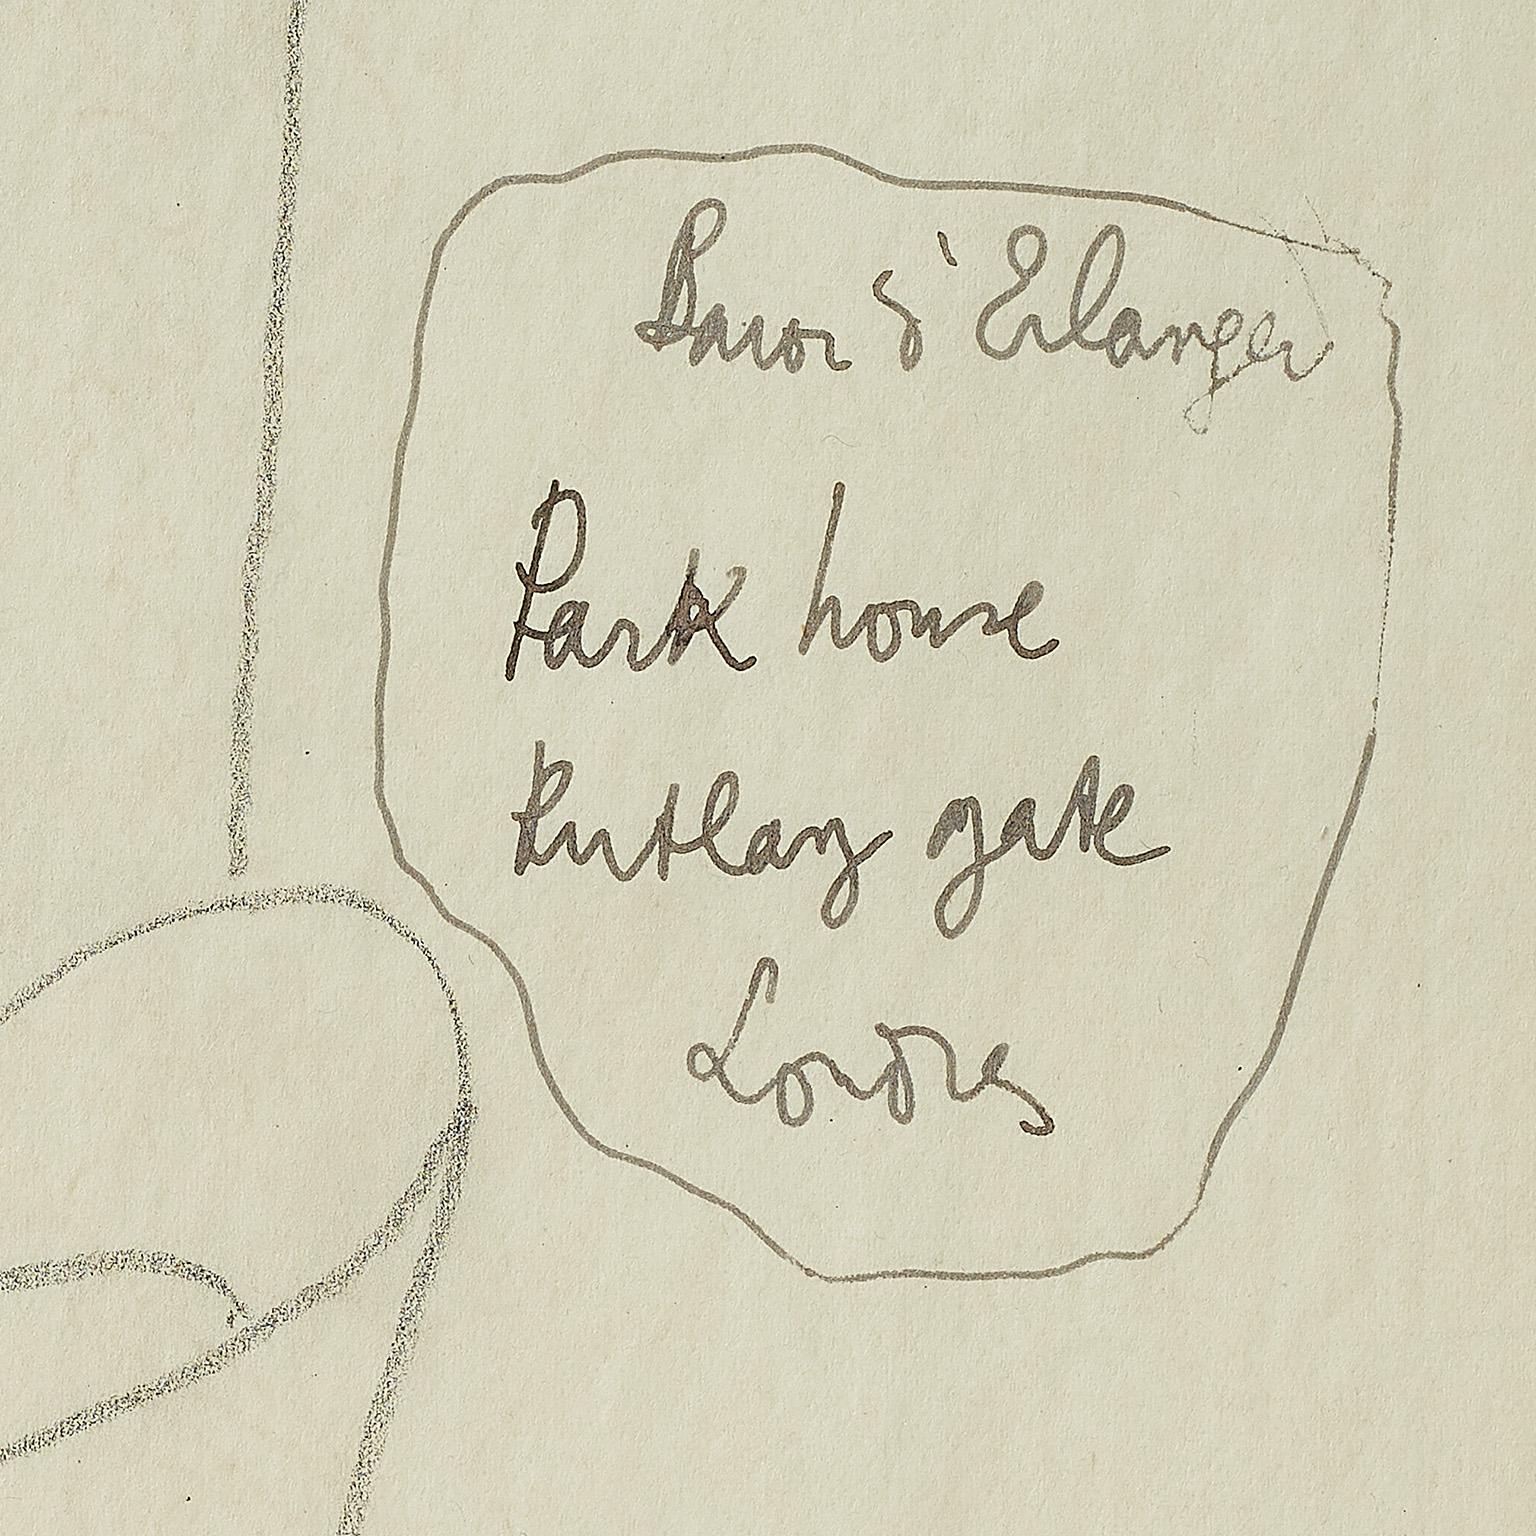 Baron d'Erlanger
Park house
Rutlay gate
Londres